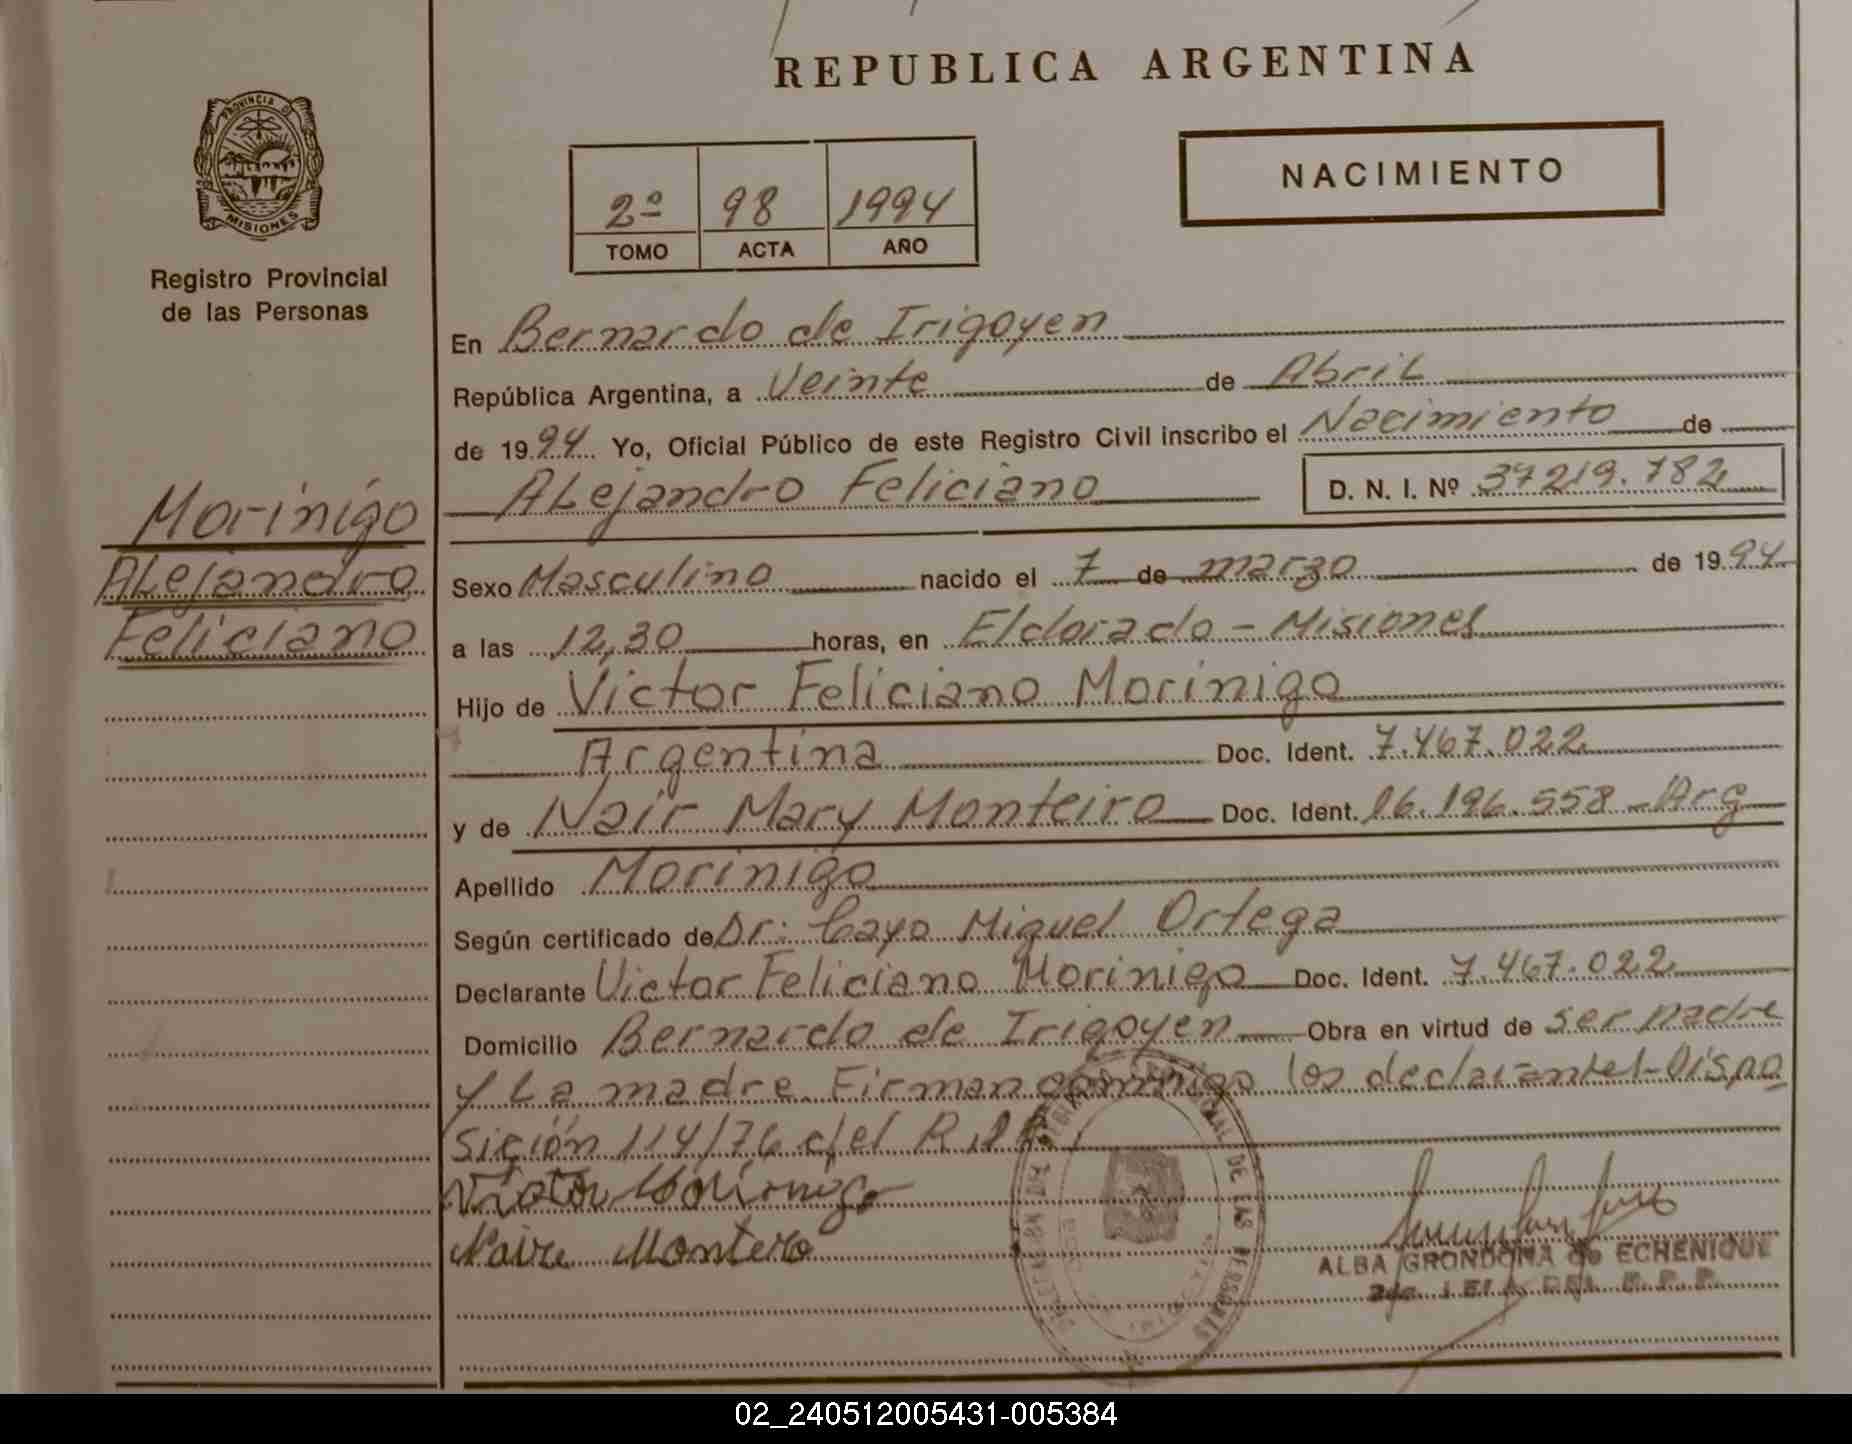 REPUBLICA ARGENTINA
PROVINCIA D
MISIONES
Registro Provincial
de las Personas
2º 98 1994
TOMO ACTA AÑO
NACIMIENTO
En Bernardo de Irigoyen
República Argentina, a Veinte de Abril
de 1994 Yo, Oficial Público de este Registro Civil inscribo el Nacimiento de
Alejandro Feliciano D. N. I. Nº 37219.782
Morinigo
Alejandro
Feliciano
Sexo Masculino nacido el 7 de marzo de 1994
a las 12,30 horas, en Eldorado - Misiones
Hijo de Victor Feliciano Morinigo
Argentina Doc. Ident. 7.467.022
y de Nair Mary Monteiro Doc. Ident. 16.196.558 - Arg
Apellido Morinigo
Según certificado de Dr: Cayo Miguel Ortega
Declarante Victor Feliciano Morinigo Doc. Ident. 7.467.022
Domicilio Bernardo de Irigoyen Obra en virtud de ser padre
y La madre. Firman conmigo los declarantes - Dispo
sición 114/76 del R.P.P.
Victor Morinigo
Naire Montero
DE LAS PERSONAS
ALBA GRONDONA de ECHENIQUE
02_240512005431-005384